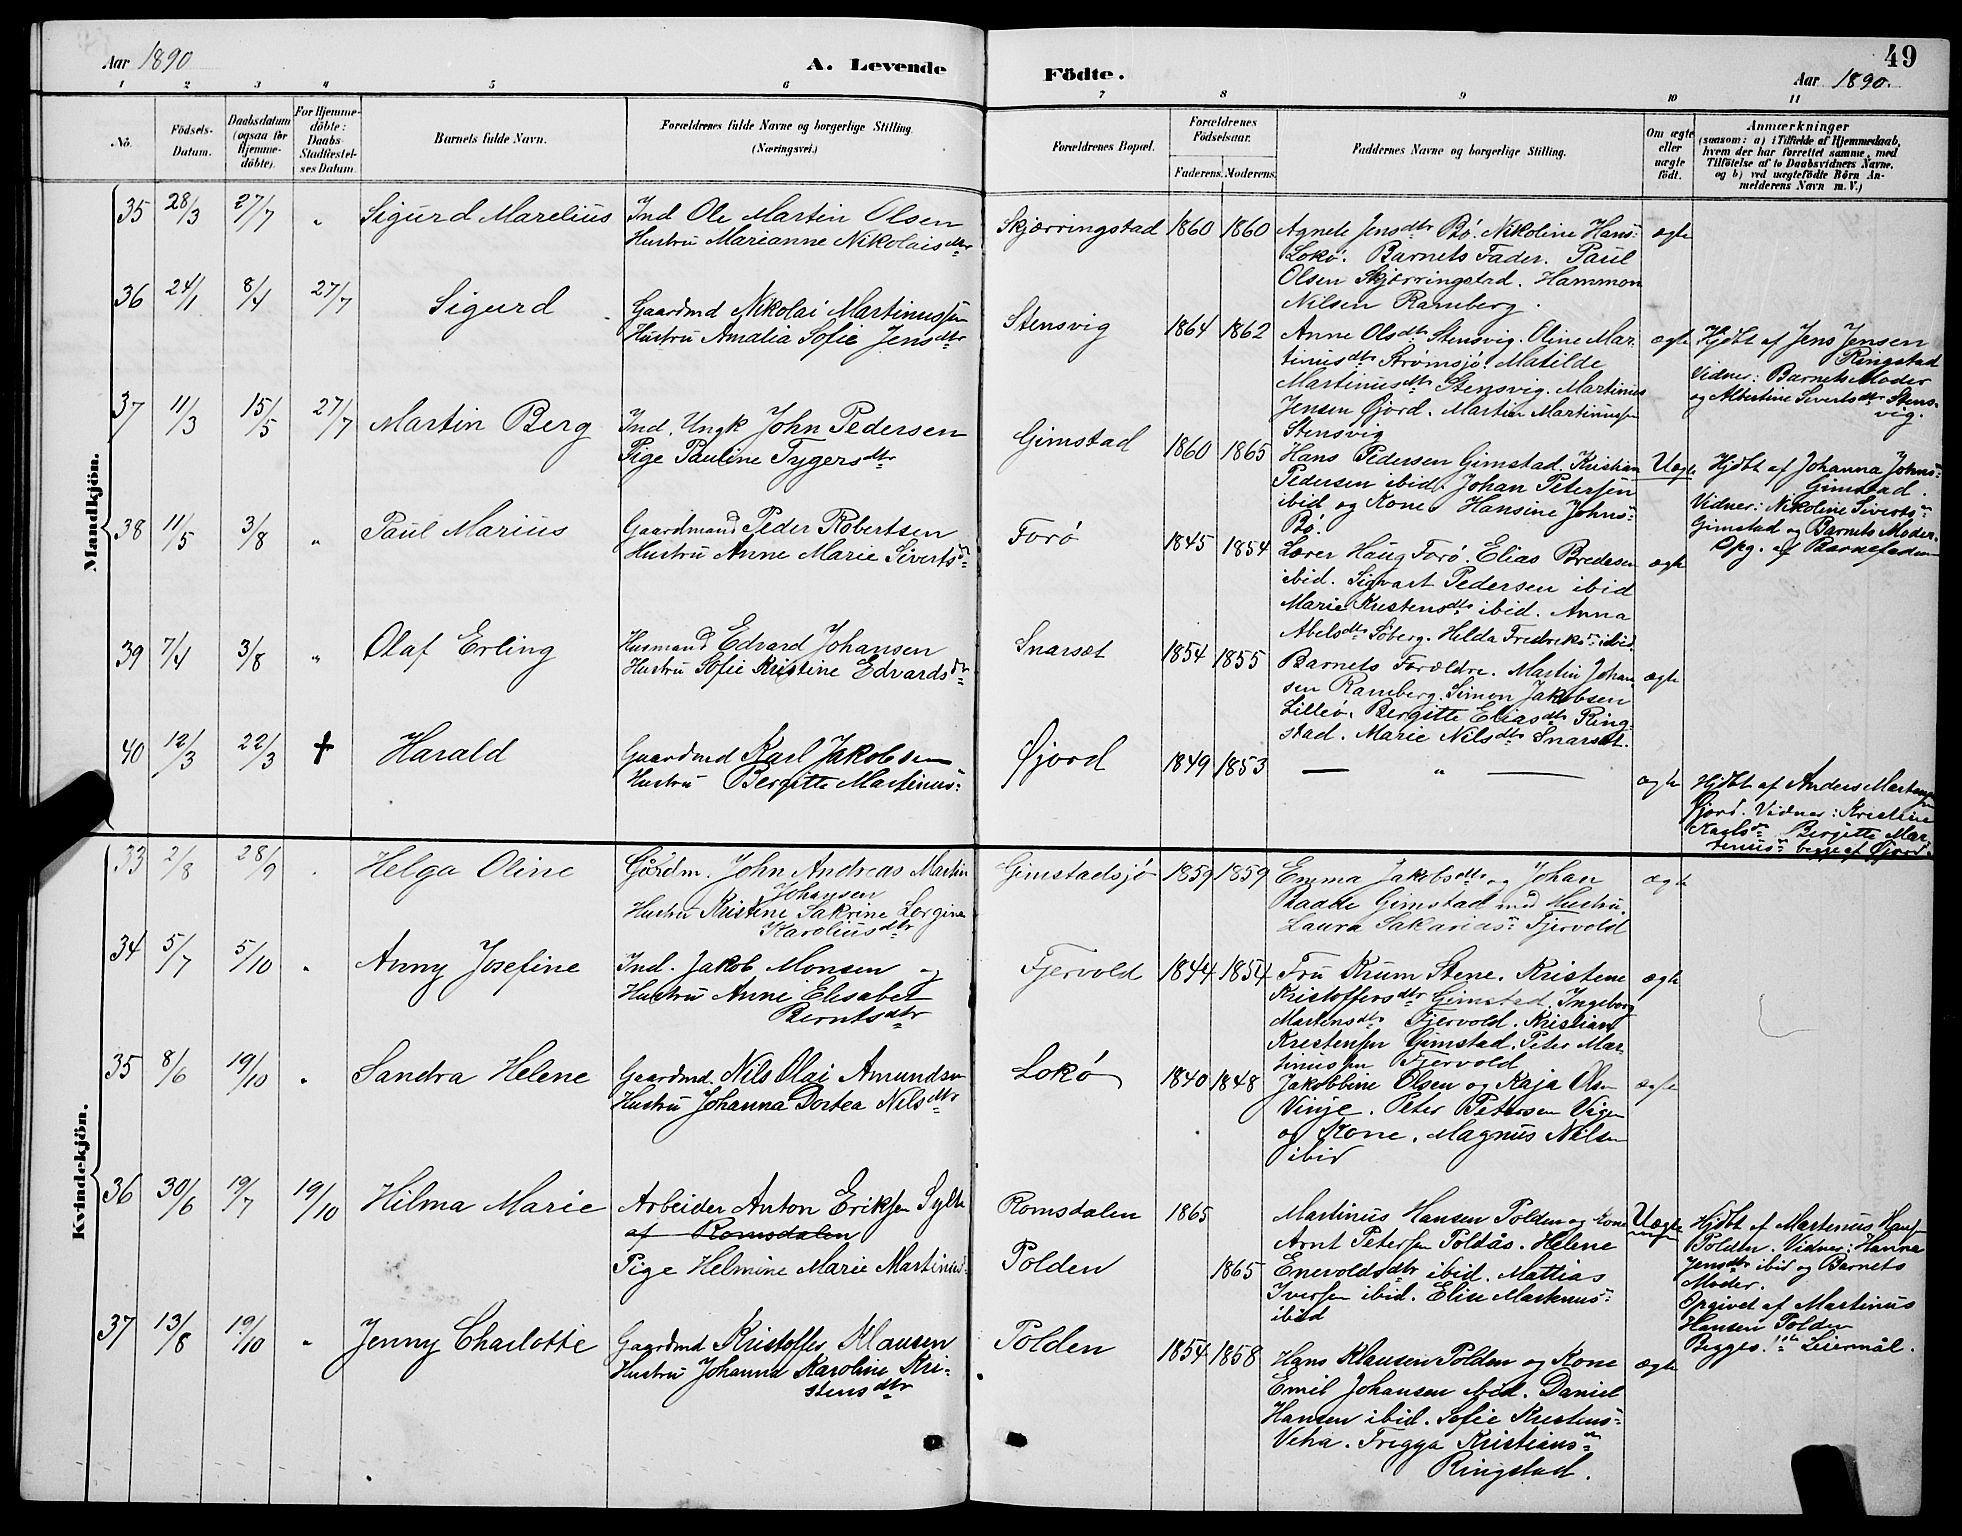 Aar 1890
A. Levende
Födte.
49
Aar 1890.
1 2 3 4 5 6 7 8 9 10 11
No.
Födsels-
Datum.
Daabsdatum
(ogsaa for
Hjemme-
döbte).
For Hjemme-
döbte:
Daabs-
Stadfæstel-
ses Datum.
Barnets fulde Navn.
Forældrenes fulde Navne og borgerlige Stilling.
(Næringsvei.)
Forældrenes Bopæl.
Forældrenes
Födselsaar.
Faderens. Moderens.
Faddernes Navne og borgerlige Stilling.
Om ægte
eller
uægte
født.
Anmærkninger
(saasom: a) i Tilfælde af Hjemmedaab,
hvem der har forrettet samme, med
Tilföielse af to Daabsvidners Navne,
og b) ved uægtefödte Börn An-
melderens Navn m. V.)
Mandkjön.
35 28/3 27/7 " Sigurd Marelius
Ind Ole Martin Olsen
Hustru Marianne Nikolaisdtr
Skjærringstad 1860 1860
Agnete Jensdtr Bö. Nikoline Hans:
Lokö. Barnets Fader. Paul
Olsen Skjærringstad. Hammon
Nilsen Ramberg.
ægte
36 24/1 8/4 27/7 Sigurd
Gaardmd Nikolai Martinussen
Hustru Amalia Sofie Jensdtr
Stensvig 1864 1862
Anne Olsdtr Stensvig. Oline Mar
tinusdtr Strömsjö. Matilde
Martinusdtr Stensvig. Martinus
Jensen Øjord. Martin Martinussen
Stensvig
ægte
Hjdbt af Jens Jensen
Ringstad
Vidner: Barnets Moder
og Albertine Sivertsdtr Stens-
vig.
37 11/3 15/5 27/7 Martin Berg
Ind. Ungk John Pedersen
Pige Pauline Tygersdtr
Gimstad 1860 1865
Hans Pedersen Gimstad. Kristian
Pedersen ibid. Johan Petersen
ibid og Kone. Hansine Johns:
Bö.
Uægte
Hjdbt af Johanna Johns:
Gimstad.
Vidner: Nikoline Siverts:
Gimstad og Barnets Moder.
Opg. af Barnefaderen
38 11/5 3/8 " Paul Marius
Gaardmand Peder Robertsen
Hustru Anne Marie Siverts:
Forö 1845 1854
Lærer Haug Forö. Elias Bredesen
ibid. Sigvart Pedersen ibid
Marie Kristensdtr ibid. Anna
Abelsdtr Söberg. Helda Fredriks: ibid.
ægte
39 7/4 3/8 " Olaf Erling
Husmand Edvard Johansen
Hustru Sofie Kristine Edvardsdtr
Snarset 1854 1855
Barnets Forældre. Martin Johan
sen Ramberg. Simon Jakobsen
Lilleö. Bergitte Eliasdtr Ring-
stad. Marie Nilsdtr Snarset.
ægte
40 12/3 22/3 † Harald
Gaardmd Karl Jakobsen
Hustru Bergitte Martinus:
Øjord 1849 1853
— " —
ægte
Hjdbt af Anders Martens
sen
Øjord. Vidner: Kristine
Karls: Bergitte Mar-
tinus: begge af Øjord.
Kvindekjön.
33 2/8 28/9 . Helga Oline
Gårdm. John Andreas Martin
Johansen
Hustru Kristine Sakrine Lorgine
Karoliusdtr
Gimstadsjö 1859 1859
Emma Jakobsdtr og Johan
Raabe Gimstad med Hustru.
Laura Sakarias: Fjervold
ægte
34 5/7 5/10 " Anny Josefine
Ind. Jakob Monsen og
Hustru Anne Elisabet
Berntsdtr
Fjervold 1844 1854
Fru Krum Stene. Kristene
Kristoffersdtr Gimstad. Ingeborg
Martensdtr Fjervold. Kristian
Kristensen Gimstad. Peter Mar-
tinussen Fjervold
ægte
35 8/6 19/10 " Sandra Helene
Gaardmd. Nils Olai Amundsen
Hustru Johanna Dortea Nilsdtr
Lokö 1840 1848
Jakobbine Olsen og Kaja Olsen
Vinje. Peter Petersen Vigen
og Kone. Magnus Nilsen
ibid
ægte
36 30/6 19/7 19/10 Hilma Marie
Arbeider Anton Eriksen Sylte
af Romsdalen
Pige Helmine Marie Martinus:
Romsdalen 1865
Polden 1865
Martinus Hansen Polden og Kone
Arnt Petersen Poldås. Helene
Enevoldsdtr ibid. Mattias
Iversen ibid. Elise Martenus:
ibid
Uægte
Hjdbt af Martenus Hansen
Polden. Vidner: Hanna
Jensdtr ibid og Barnets
Moder.
Opgivet af Martinus
Hansen Polden
Begges 1ste Leiermål.
37 13/8 19/10 " Jenny Charlotte
Gaardmd Kristoffer Klausen
Hustru Johanna Karoline Kri-
stensdtr
Polden 1854 1858
Hans Klausen Polden og Kone
Emil Johansen ibid. Daniel
Hansen ibid. Sofie Kristens:
Veha. Frigga Kristians:
Ringstad.
ægte